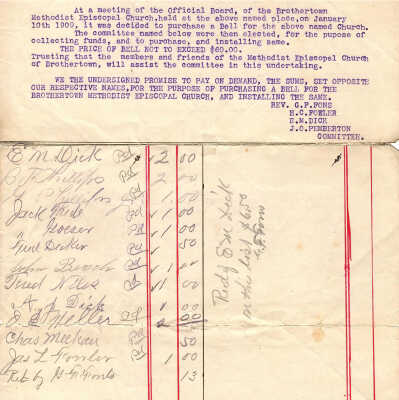 At a meeting of the Official Board, of the Brothertown
Methodist Episcopal Church,held at the above named place,on January
10th 1909, it was decided to purchase a Bell for the above named Church.
The committee named below were then elected, for the pupose of
collecting funds, and to purchase, and installing same.
THE PRICE OF BELL NOT TO EXCEED $60.00.
Trusting that the members and friends of the Methodist Episcopal Church
of Brothertown, will assist the committee in this undertaking.
WE THE UNDERSIGNED PROMISE TO PAY ON DEMAND, THE SUMS, SET OPPOSITE
OUR RESPECTIVE NAMES,FOR THE PURPOSE OF PURCHASING A BELL FOR THE
BROTHERTOWN METHODIST EPISCOPAL CHURCH, AND INSTALLING THE SAME.
REV. G.F.FONS
H.C.FOWLER
E.M.DICK
J.O.PEMBERTON
COMMITTEE.
E M Dick Pd 2 00
Phillips Pd 2 00
1 00
Jack Pd 1.00
Pd 1 00
Fred Pd 50
John Pd 1.00
Fred Niles Pd 1 00
Dick 1 00
Pd 2 00
Chas Pd 50
Jas L Fowler Pd 1 00
Rec by G F Fons 13
Rec by E M Dick
on this list $6.50
G F Fons